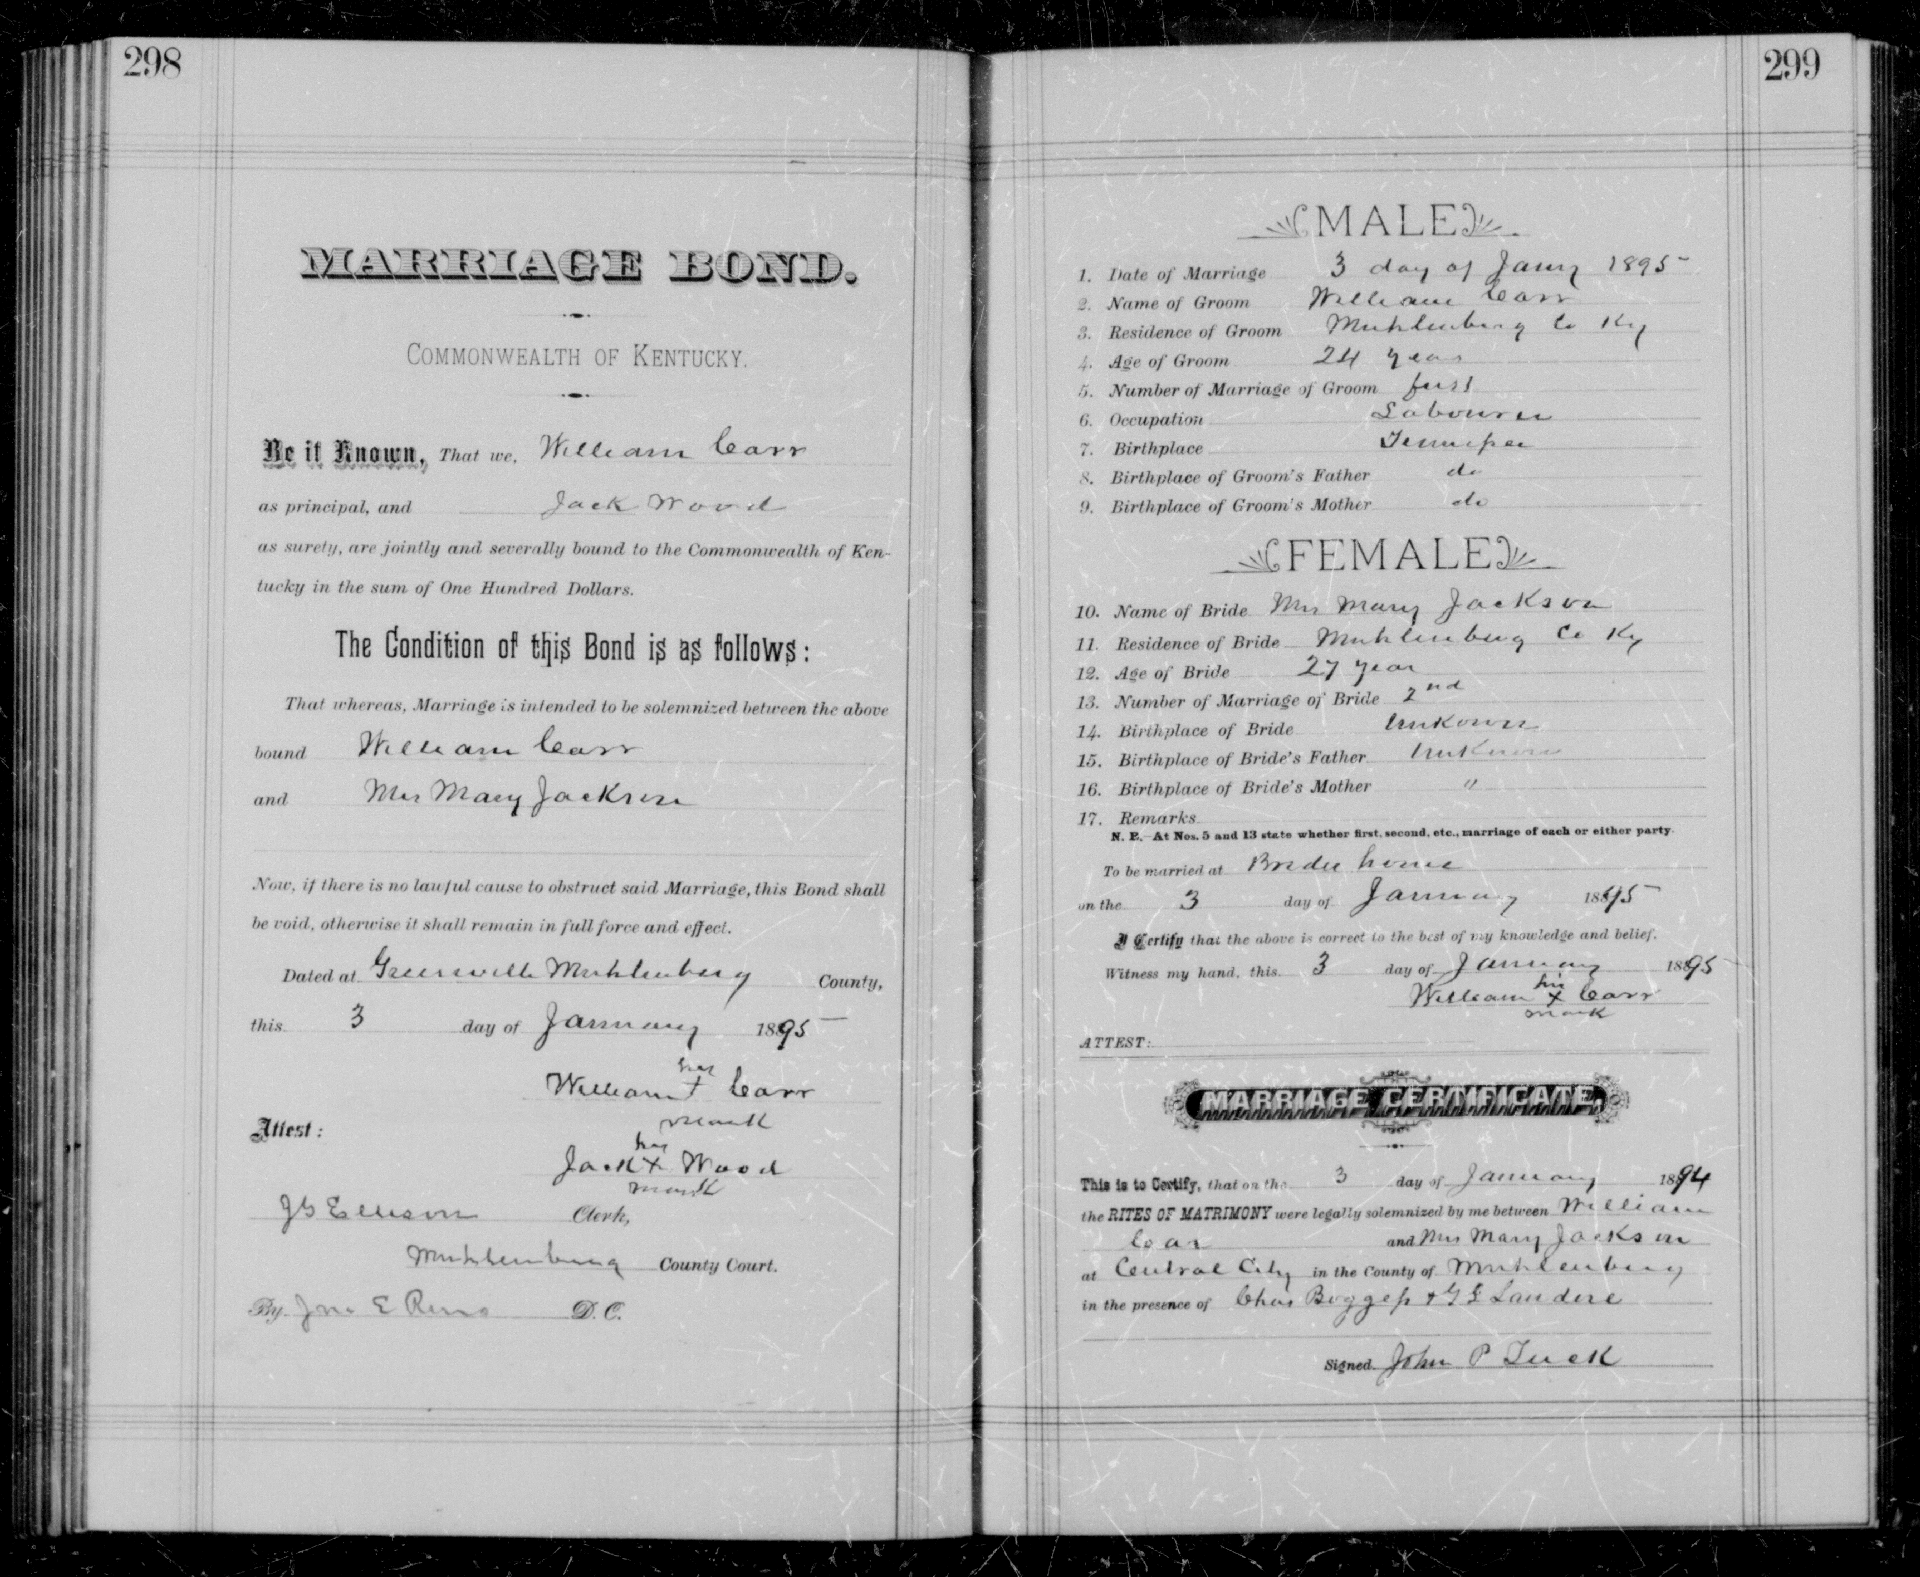 298
MARRIAGE BOND.
COMMONWEALTH OF KENTUCKY.
Be it Known, That we, William Carr
as principal, and Jack Wood
as surety, are jointly and severally bound to the Commonwealth of Ken-
tucky in the sum of One Hundred Dollars.
The Condition of this Bond is as follows:
That whereas, Marriage is intended to be solemnized between the above
bound William Carr
and Mrs Mary Jackson
Now, if there is no lawful cause to obstruct said Marriage, this Bond shall
be void, otherwise it shall remain in full force and effect.
Dated at Greenville Muhlenberg County,
this 3 day of January 1895
his
William + Carr
mark
Attest:
his
Jack + Wood
mark
Clerk,
Muhlenburg County Court.
By Jno E Reno D. C.
299
MALE
1. Date of Marriage 3 day of Jany 1895
2. Name of Groom William Carr
3. Residence of Groom Muhlenberg Co Ky
4. Age of Groom 24 years
5. Number of Marriage of Groom first
6. Occupation Labourer
7. Birthplace Tennessee
8. Birthplace of Groom's Father do
9. Birthplace of Groom's Mother do
FEMALE
10. Name of Bride Mrs Mary Jackson
11. Residence of Bride Muhlenberg Co Ky
12. Age of Bride 27 year
13. Number of Marriage of Bride 2nd
14. Birthplace of Bride Unkown
15. Birthplace of Bride's Father Unknown
16. Birthplace of Bride's Mother "
17. Remarks
N. B.—At Nos. 5 and 13 state whether first, second, etc., marriage of each or either party.
To be married at Brides home
on the 3 day of January 1895
I Certify that the above is correct to the best of my knowledge and belief.
Witness my hand, this 3 day of January 1895
his
William x Carr
mark
ATTEST:
MARRIAGE CERTIFICATE.
This is to Certify, that on the 3 day of January 1894
the RITES OF MATRIMONY were legally solemnized by me between William
Car and Mrs Mary Jackson
at Central City in the County of Muhlenberg
in the presence of Chas Boggess &
Signed John P Tuck